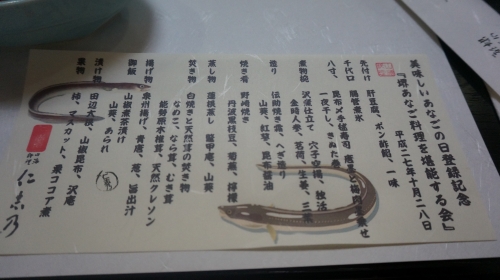 美味しいあなごの日登録記念
『堺あなご料理を堪能する会』
平成二七年十月二八日
先付け 肝豆腐、ポン酢餡、一味
腸管煮貫
千代口
八寸、
一夜干し、きぬた
煮物椀 沢煮仕立て 穴子空揚、独活
金時人参、茗荷、生姜、三葉
造り 伝助焼き霜、へぎ造り
山葵、紅蓼、昆布醤油
焼き肴 野崎焼き
丹波黒枝豆、菊蕪、檸檬
蒸し物 蓮根蒸し、鼈甲庵、山葵
焚き物 白焼きと天然茸の焚き物
なめこ、なら茸、むき茸
能勢原木椎茸、天然クレソン
揚げ物 泉州揚げ、青唐、葱、旨出汁
御飯 山椒煮茶漬け
山葵、あられ
漬け物 田辺大根、山椒昆布、沢庵
菓物 柿、マスカット、栗ココア煮